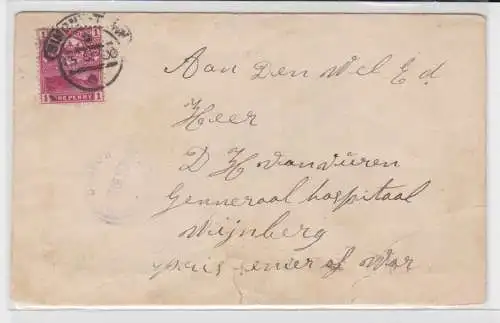 1 1
1 ONE PENNY 1
Aan Den Wel E d.
Heer
D H van vuren
Genneraal hospitaal
Wijnberg
of War